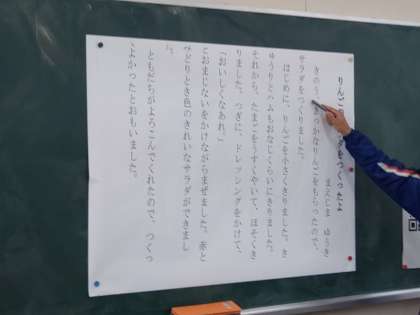 りんご サラダをつくったよ
まえじま ゆうき
きのう、 っかなりんごをもらったので、
サラダをつくりました。
はじめに、りんごを小さくきりました。き
ゅうりとハムもおなじくらいにきりました。
それから、たまごをうすくやいて、ほそくき
りました。つぎに、ドレッシングをかけて、
「おいしくなあれ。」
とおまじないをかけながらまぜました。赤と
みどりとき色のきれいなサラダができまし
た。
ともだちがよろこんでくれたので、つくっ
てよかったとおもいました。